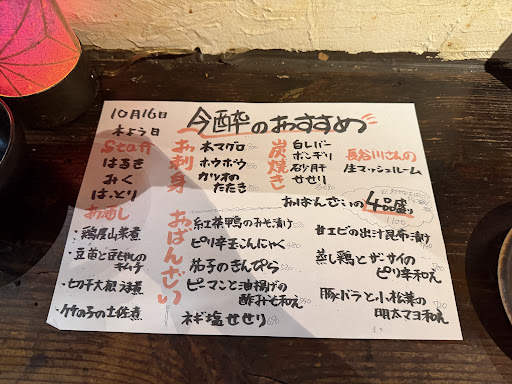 10月16日
木よう日
今酔のおすすめ
Staff
はるき
みく
はっとり
お刺身
本マグロ
ホウボウ
カツオの
たたき
炭焼き
白レバー
ボンヂリ
砂肝
せせり
長谷川さんの
生マッシュルーム
お通し
・鶏屋山菜煮
・豆苗と豆もやしの
・切干大根の煮
・竹の子の土佐煮
おばんざい
おばんざいの4品盛り
1100
紅茶鴨のみそ漬け
ピリ辛玉こんにゃく
茄子のきんぴら
ピーマンと油揚げの
酢みそ和え
ネギ塩せせり
甘エビの出汁昆布漬け
蒸し鶏とザーサイの
ピリ辛和え
豚バラと小松菜の
明太マヨ和え